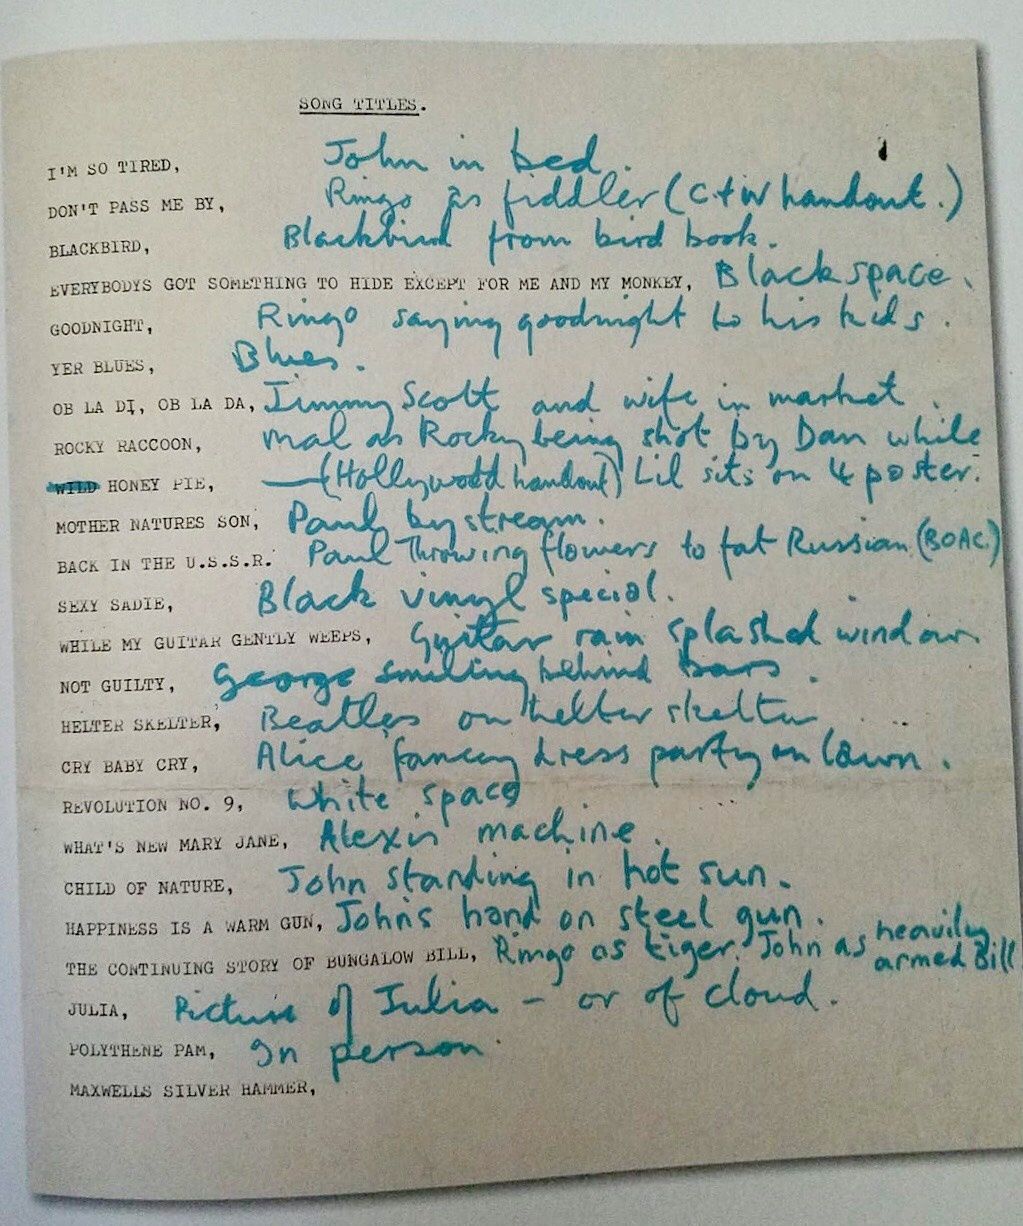 SONG TITLES.
I'M SO TIRED, John in bed.
DON'T PASS ME BY, Ringo as fiddler (C+W handout.)
BLACKBIRD, Blackbird from bird book.
EVERYBODYS GOT SOMETHING TO HIDE EXCEPT FOR ME AND MY MONKEY, Black space.
GOODNIGHT, Ringo saying goodnight to his kids.
YER BLUES, Blues.
OB LA DI, OB LA DA, Jimmy Scott and wife in market.
ROCKY RACCOON, Mal as Rocky being shot by Dan while
WILD HONEY PIE, (Hollywood handout) Lil sits on 4 poster.
MOTHER NATURES SON, Paul by stream.
BACK IN THE U.S.S.R. Paul Throwing flowers to fat Russian (BOAC.)
SEXY SADIE, Black vinyl special.
WHILE MY GUITAR GENTLY WEEPS, Guitar rain splashed window
NOT GUILTY, George smiling behind bars.
HELTER SKELTER, Beatles on helter skelter
CRY BABY CRY, Alice fancy dress party on lawn.
REVOLUTION NO. 9, White space
WHAT'S NEW MARY JANE, Alexis machine.
CHILD OF NATURE, John standing in hot sun.
HAPPINESS IS A WARM GUN, John's hand on steel gun.
THE CONTINUING STORY OF BUNGALOW BILL, Ringo as tiger. John as heavily armed Bill
JULIA, Picture of Julia - or of cloud.
POLYTHENE PAM, In person.
MAXWELLS SILVER HAMMER,